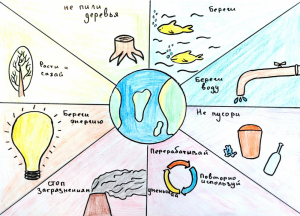 не пили
деревья
Береги
Расти и
сажай
Береги
воду
Береги
энергию
Не мусори
Перерабатывай
Повторно
используй
уменьшай
СТОП
Загрязнению